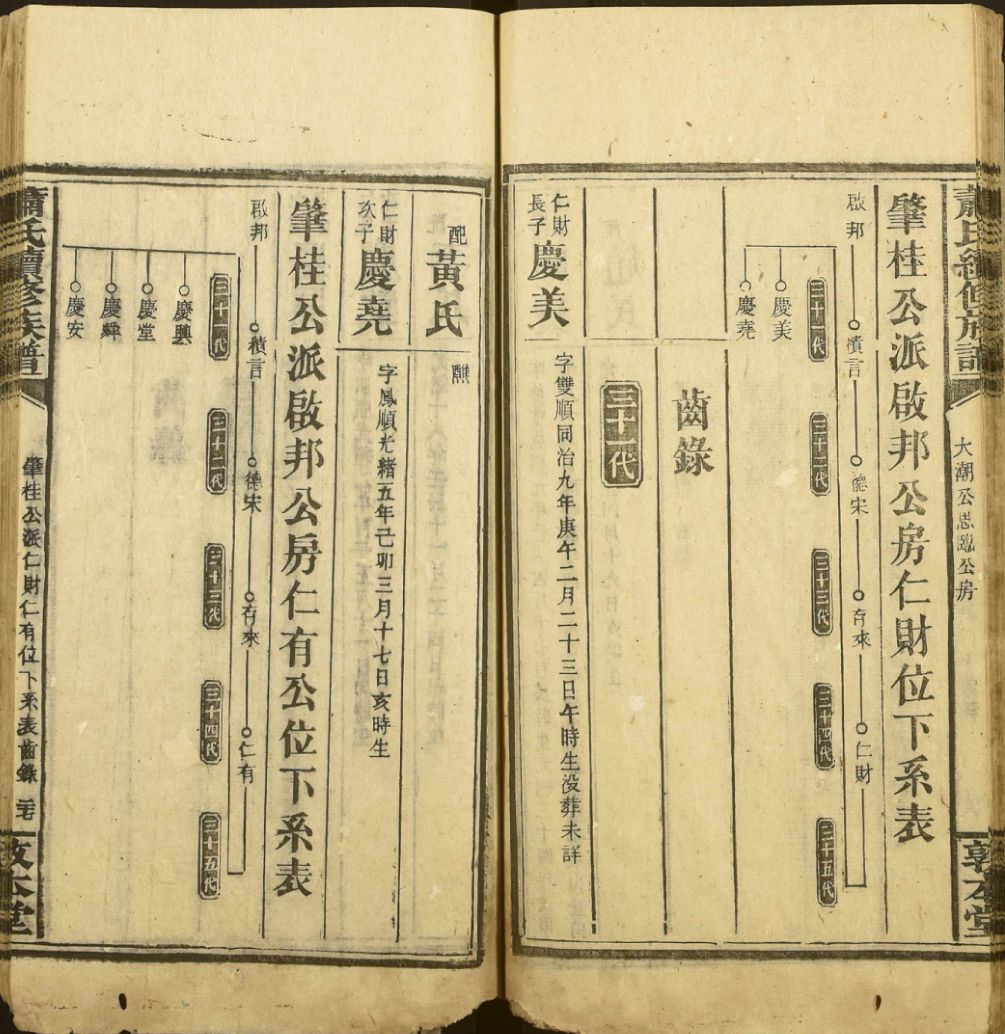 蕭氏續修族譜
大潮公思聰公房
敦本堂
肇桂公派啟邦公房仁財位下系表
啟邦
積言
德宋
存來
仁財
三十一代
三十二代
三十三代
三十四代
三十五代
慶美
慶堯
齒錄
三十一代
仁財長子
慶美
字雙順同治九年庚午二月二十三日午時生没葬未詳
配黃氏
醮
仁財次子
慶堯
字鳳順光緒五年己卯三月十七日亥時生
肇桂公派啟邦公房仁有公位下系表
啟邦
積言
德宋
存來
仁有
三十一代
三十二代
三十三代
三十四代
三十五代
慶興
慶堂
慶
慶安
蕭氏續修族譜
肇桂公派仁財仁有位下系表齒錄
敦本堂